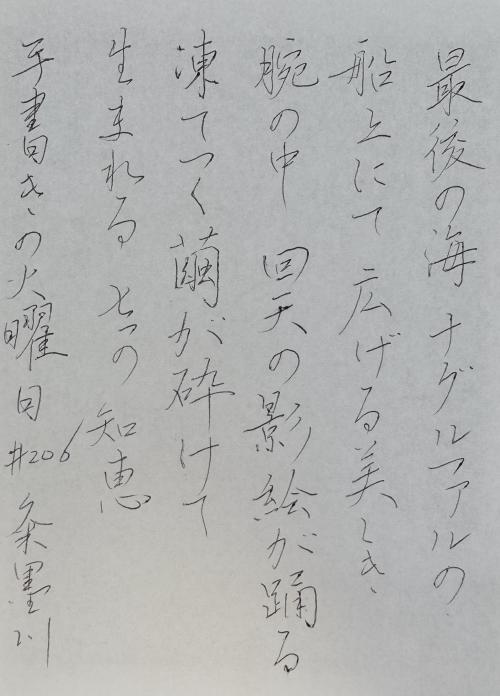 最後の海 ナグルファルの
船上にて 広げる美しき
腕の中 回天の影絵が踊る
凍てつく繭が砕けて
生まれる 七つの 知恵
手書きの火曜日 #206 粂墨川